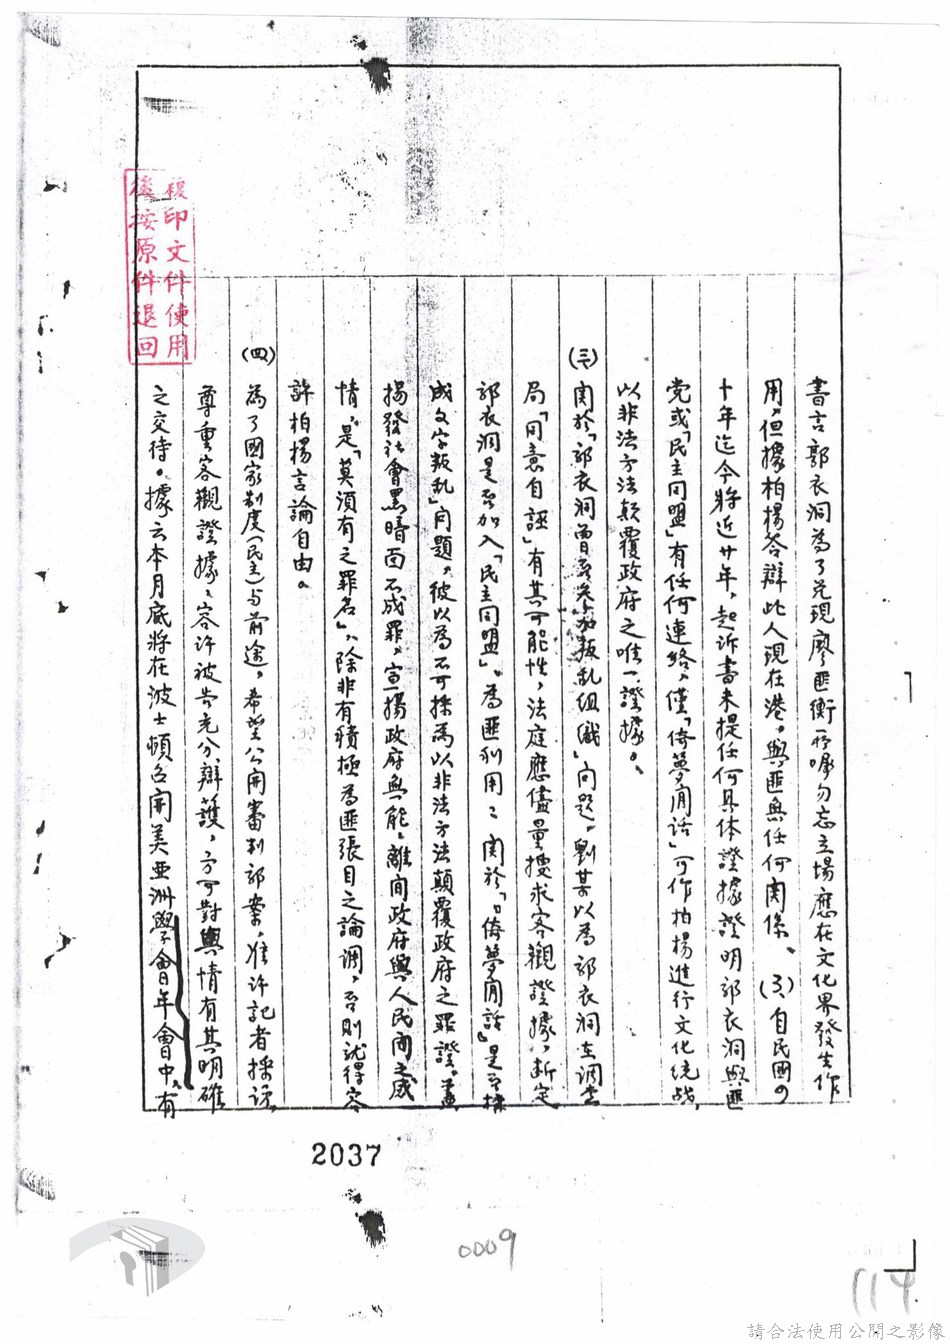 書言郭衣洞為了兌現廖匪衡所囑勿忘立場應在文化界發生作
用，但據柏楊答辯此人現在港，與匪無任何関係。(3)自民國四
十年迄今將近廿年，起訴書未提任何具体證據證明郭衣洞與匪
党或「民主同盟」有任何連絡，僅「倚夢閒話」可作柏楊進行文化统战，
以非法方法顛覆政府之唯一證據。
(三)関於「郭衣洞曾否参加叛乱組織」问题，劉某以為郭衣洞在調查
局「同意自誣」有其可能性，法庭應儘量搜求客觀證據，断定
郭衣洞是否加入「民主同盟」。為匪利用；関於「倚夢閒話」是否構
成文字叛乱」问題，彼以為不可採為以非法方法顛覆政府之罪證。蓋
揭發社會黑暗面不成罪，宣揚政府無能，離间政府與人民间之感
情，是「莫須有之罪名」，除非有積極為匪張目之論调，否则就得容
許柏楊言論自由。
(四)為了國家制度(民主)与前途，希望公開審判郭案，准许記者採访，
尊重客觀證據，容许被告充分辯護，方可對輿情有其明確
之交待。據云本月底將在波士頓召開美亞洲學會年會中，有
複印文件使用
後按原件退回
2037
0009
114
請合法使用公開之影像